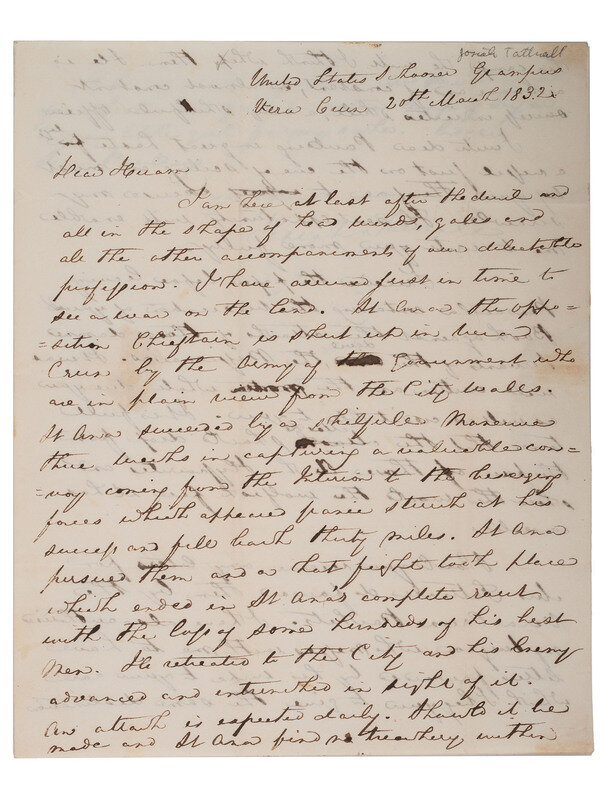 Josiah Tattnall
United States Schooner Grampus
Vera Cruz 20th March 1832
Dear Hiram
I am here at last after the devil and
all in the shape of head winds, gales and
all the other accompaniments of our delectable
profession. I have arrived just in time to
see a war on the land. St Ana the oppo=
=sition Chieftain is shut up in Vera
Cruz by the Army of Government who
are in plain view from the City walls.
St Ana succeeded by a skilful Manuvre
three weeks in capturing a valuable con=
=voy coming from the Interior to the besieging
forces which appeared panic struck at his
success and fell back thirty miles. St Ana
pursued them and a hot fight took place
which ended in St Ana's complete rout
with the loss of some hundreds of his best
Men. He retreated to the City and his Enemy
advanced and intrenched in sight of it.
An attack is expected daily. Should it be
made and St Ana find no treachery within